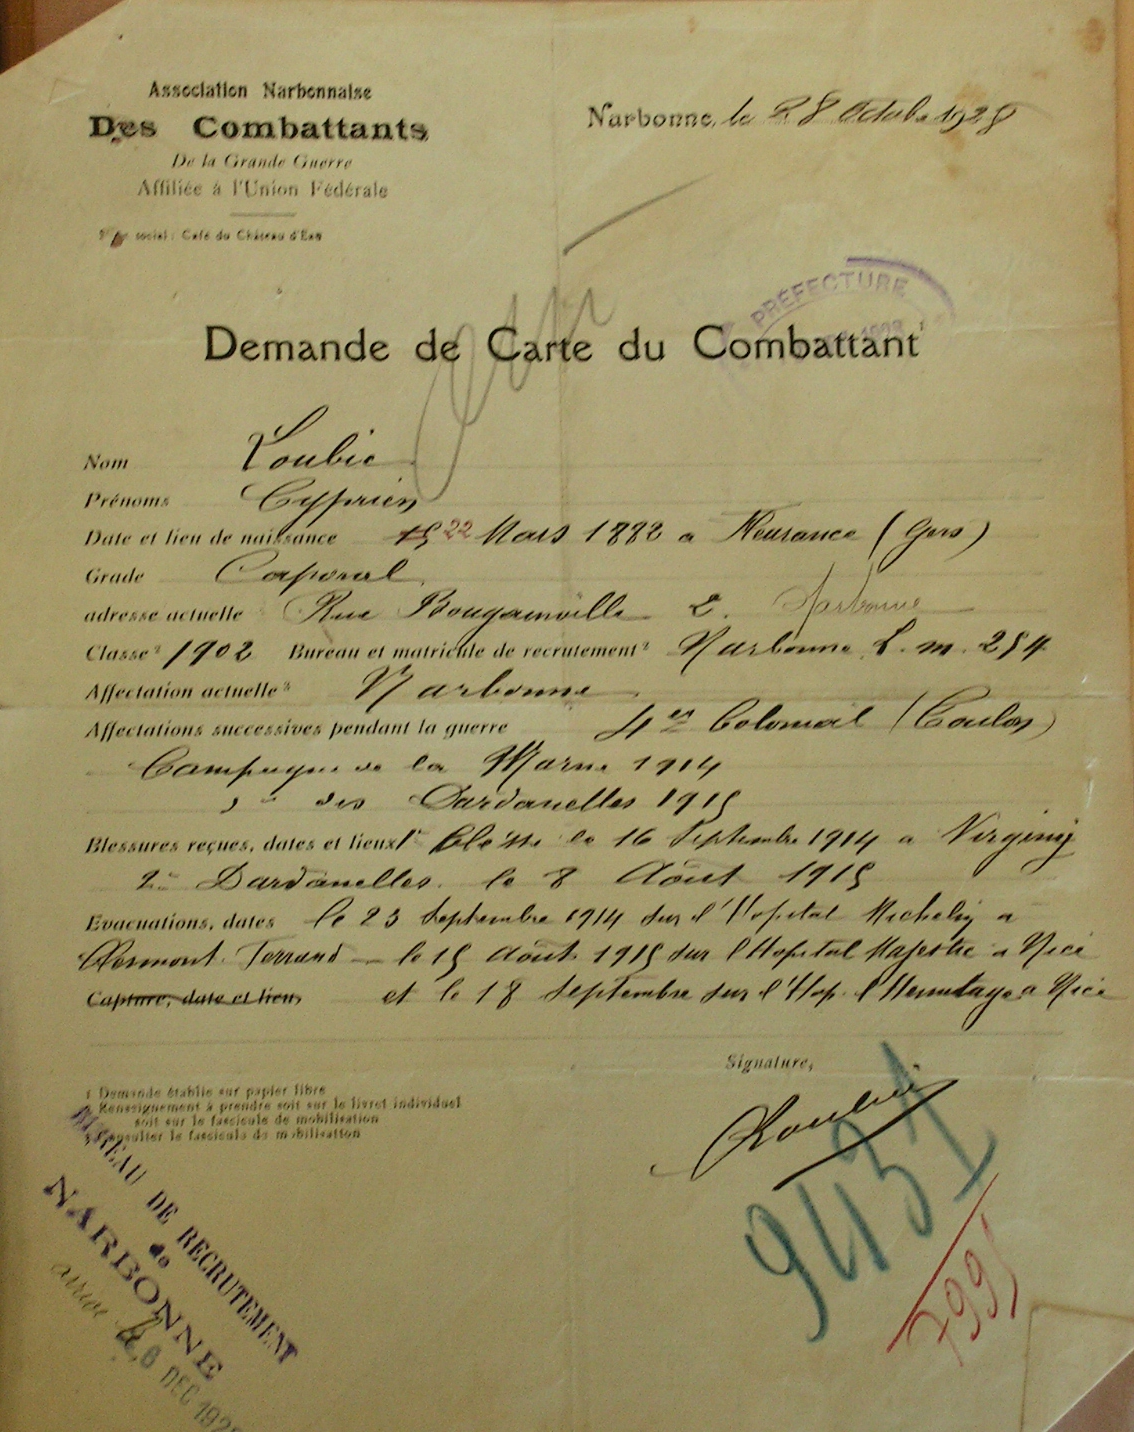 Association Narbonnaise
Des Combattants
De la Grande Guerre
Affiliée à l'Union Fédérale
social : Café du Château d'Eau
Narbonne, le 28 Octobre 1928
PRÉFECTURE
Demande de Carte du Combattant 1
Nom Loubic
Prénoms Cyprien
Date et lieu de naissance 22 Mars 1882 a Fleurance (Gers)
Grade Caporal
adresse actuelle Rue Bougainville 2. Narbonne
Classe 2 1902 Bureau et matricule de recrutement 2 Narbonne L. m. 254
Affectation actuelle 3 Narbonne
Affectations successives pendant la guerre 4er Colonial (Toulon)
Campagne de la Marne 1914
" des Dardanelles 1915
Blessures reçues, dates et lieux le 16 Septembre 1914 a Virginy
Dardanelles. le 8 Août 1915
Evacuations, dates le 23 Septembre 1914 sur l'Hopital Michelin a
Clermont Ferrand - le 15 Août 1915 sur l'Hopital Majestic a Nice
Capture, date et lieu, et le 18 Septembre sur l'Hop. l'Hermitage a Nice
Signature,
Loubic
1 Demande établie sur papier libre
Renseignement à prendre soit sur le livret individuel
soit sur le fascicule de mobilisation
Consulter le fascicule de mobilisation
BUREAU DE RECRUTEMENT
de
NARBONNE
6 DEC 192
9431